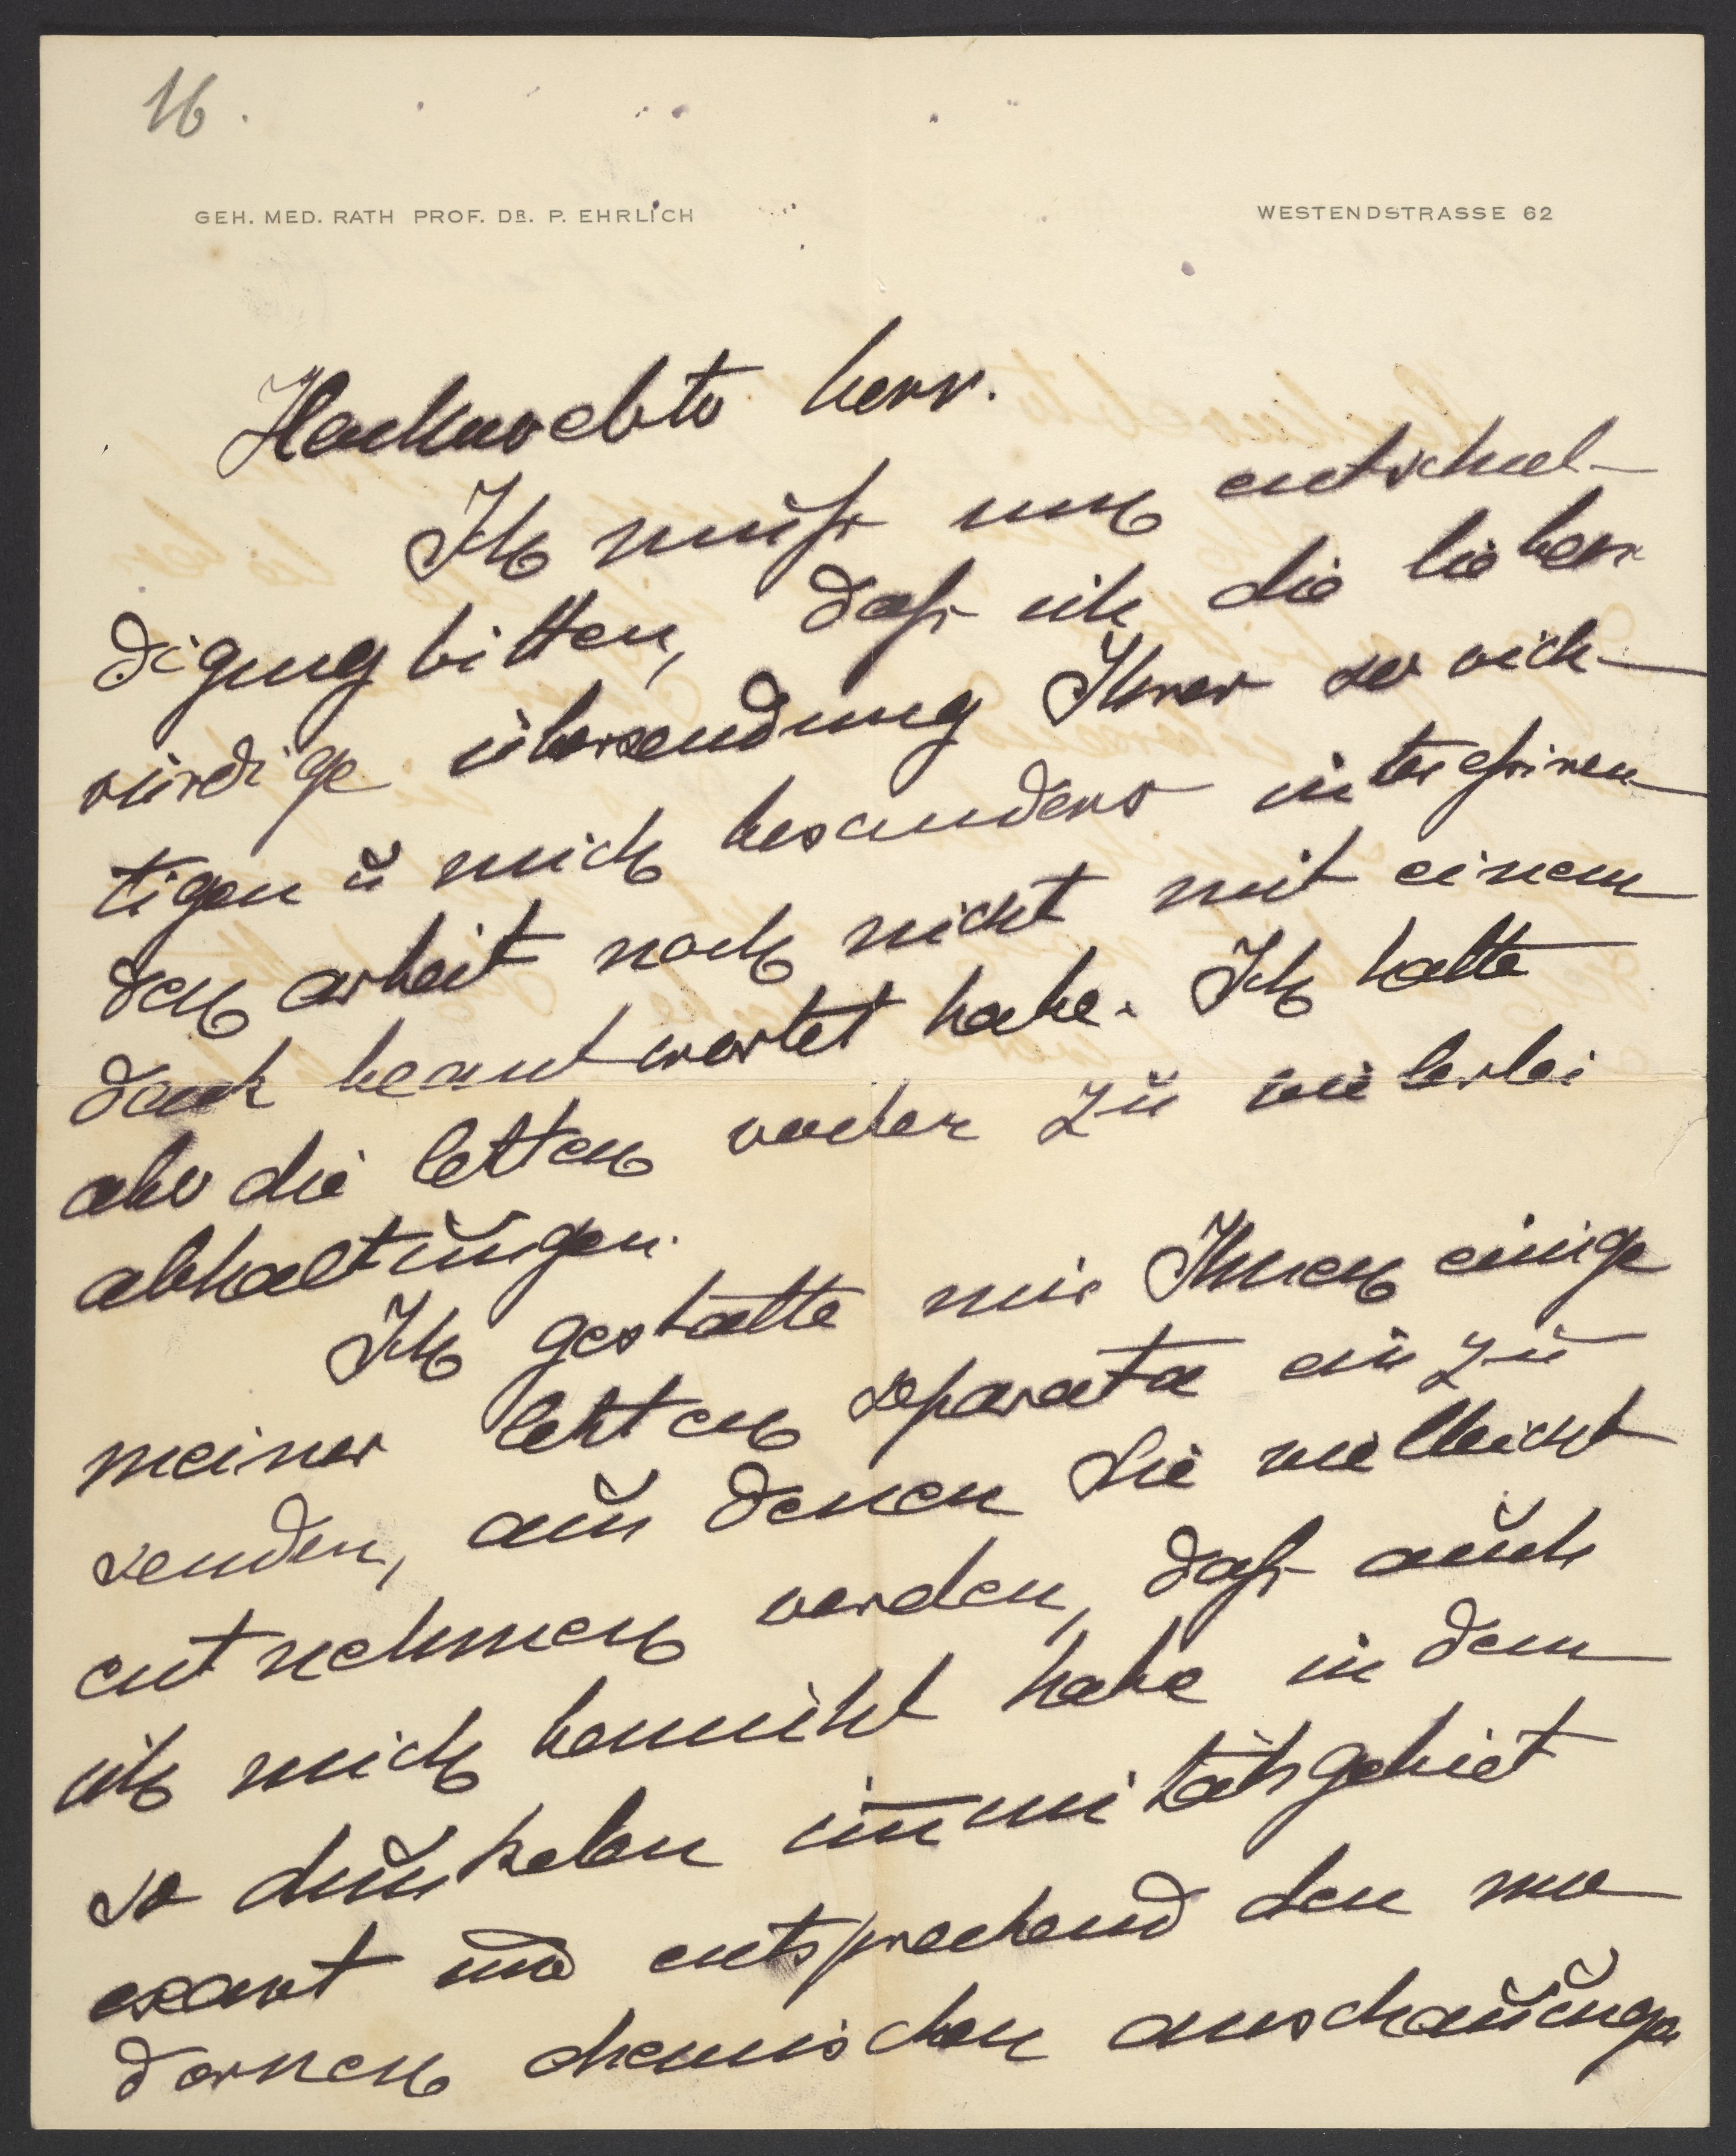 16.
GEH. MED. RATH PROF. DR. P. EHRLICH
WESTENDSTRASSE 62
Hochverehrter herr.
Ich muß um entschul-
digung bitten, daß ich die liebens
würdige übersendung Ihrer so wich-
tigen u mich besonders interessiren
den arbeit noch nicht mit einem
dank beantwortet habe. Ich hatte
aber die letzten wochen zu vielerlei
abhaltungen.
Ich gestatte mir Ihnen einige
meiner letzten separata ein zu
senden, aus denen Sie vielleicht
entnehmen werden, daß auch
ich mich bemüht habe in dem
so dunkelen im̅unitätsgebiet
exact und entsprechend den mo
dernen chemischen anschauungen